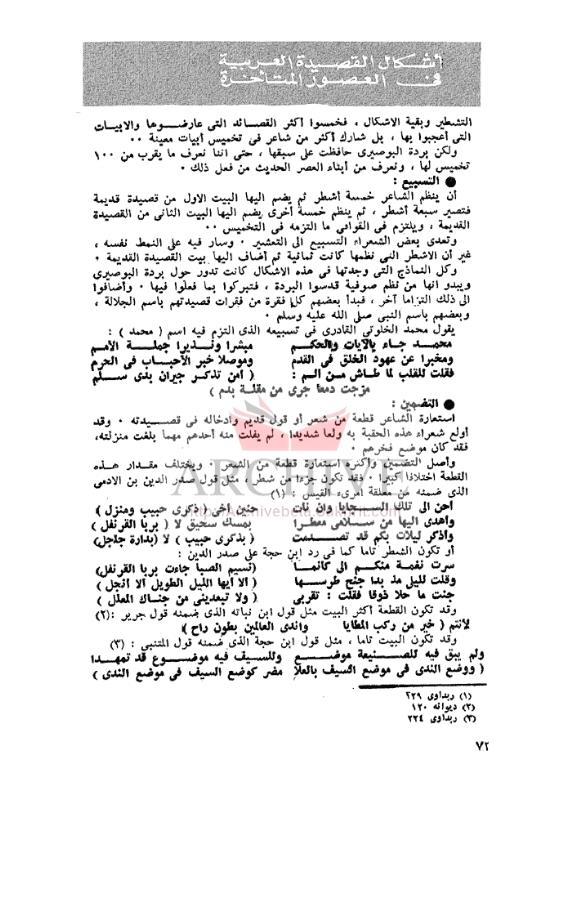 أشكال القصيدة العربية
في العصور المتأخرة
التشطير وبقية الاشكال ، فخمسوا أكثر القصائد التى عارضوها والابيات
التى أعجبوا بها ، بل شارك أكثر من شاعر فى تخميس أبيات معينة ٠٠
ولكن بردة البوصيرى حافظت على سبقها ، حتى اننا نعرف ما يقرب من ١٠٠
تخميس لها ، ونعرف من أبناء العصر الحديث من فعل ذلك ٠
● التسبيع :
أن ينظم الشاعر خمسة أشطر ثم يضم اليها البيت الاول من قصيدة قديمة
فتصير سبعة أشطر ، ثم ينظم خمسة أخرى يضم اليها البيت الثانى من القصيدة
القديمة ، ويلتزم فى القوافى ما التزمه فى التخميس ٠٠
وتعدى بعض الشعراء التسبيع الى التعشير ٠ وسار فيه على النمط نفسه ،
غير أن الاشطر التى نظمها كانت ثمانية ثم أضاف اليها بيت القصيدة القديمة ٠
وكل النماذج التى وجدتها فى هذه الاشكال كانت تدور حول بردة البوصيرى
ويبدو انها من نظم صوفية قدسوا البردة ، فتبركوا بما فعلوا فيها ٠ وأضافوا
الى ذلك التزاما آخر ، فبدأ بعضهم كل فقرة من فقرات قصيدتهم باسم الجلالة ،
وبعضهم باسم النبى صلى الله عليه وسلم ٠
يقول محمد الخلوتى القادرى فى تسبيعه الذى التزم فيه اسم ( محمد ) :
محمـد جـاء بالآيات والحكـم مبشرا ونـذيرا جملـة الأمم
ومخبرا عن عهود الخلق فى القدم وموصلا خبر الأحبـاب فى الحرم
فقلت للقلب لما طـاش مـن الـم : ( أمن تذكـر جيران بذى سـلم
مزجت دمعا جرى من مقلـة بدم )
● التضمين :
استعارة الشاعر قطعة من شعر أو قول قديم وادخاله فى قصيدته ٠ وقد
أولع شعراء هذه الحقبة به ولعا شديدا ، لم يفلت منه أحدهم مهما بلغت منزلته،
فقد كان موضع فخرهم ٠
وأصل التضمين وأكثره استعارة قطعة من الشعر ٠ ويختلف مقدار هذه
القطعة اختلافا كبيرا ٠ فقد تكون جزءا من شطر ، مثل قول صدر الدين بن الادمى
الذى ضمنه من معلقة امرىء القيس : (١)
احن الى تلك السـجايا وان نأت حنين أخى ( ذكرى حبيب ومنزل )
واهدى اليها من سـلامى معطـرا بمسك سحيق لا ( بريا القرنفل )
واذكر ليلات بكم قد تصـرمت ( بذكرى حبيب ) لا (بدارة جلجل)
أو تكون الشطر تاما كما فى رد ابن حجة على صدر الدين :
سرت نفحـة منكم الى كانمـا (نسيم الصبا جاءت بريا القرنفل)
وقلت لليل مذ بدا جنح طرسـها ( ألا أيها الليل الطويل ألا انجل )
جنت ما حلا ذوقا فقلت : تقربى ( ولا تبعدينى من جناك المعلل )
وقد تكون القطعة أكثر البيت مثل قول ابن نباته الذى ضمنه قول جرير :(٢)
لأنتم ( خير من ركب المطايا واندى العالمين بطون راح )
وقد تكون البيت تاما ، مثل قول ابن حجة الذى ضمنه قول المتنبى : (٣)
ولم يبق فيه للصـنيعة موضـع وللسيف فيه موضـوع قد تمهـدا
( ووضع الندى فى موضع السيف بالعلا مضر كوضع السيف فى موضع الندى )
(١) ربداوى ٢٢٩
(٢) ديوانه ١٢٠
(٣) ربداوى ٢٢٤
٧٢
ARCHIVE